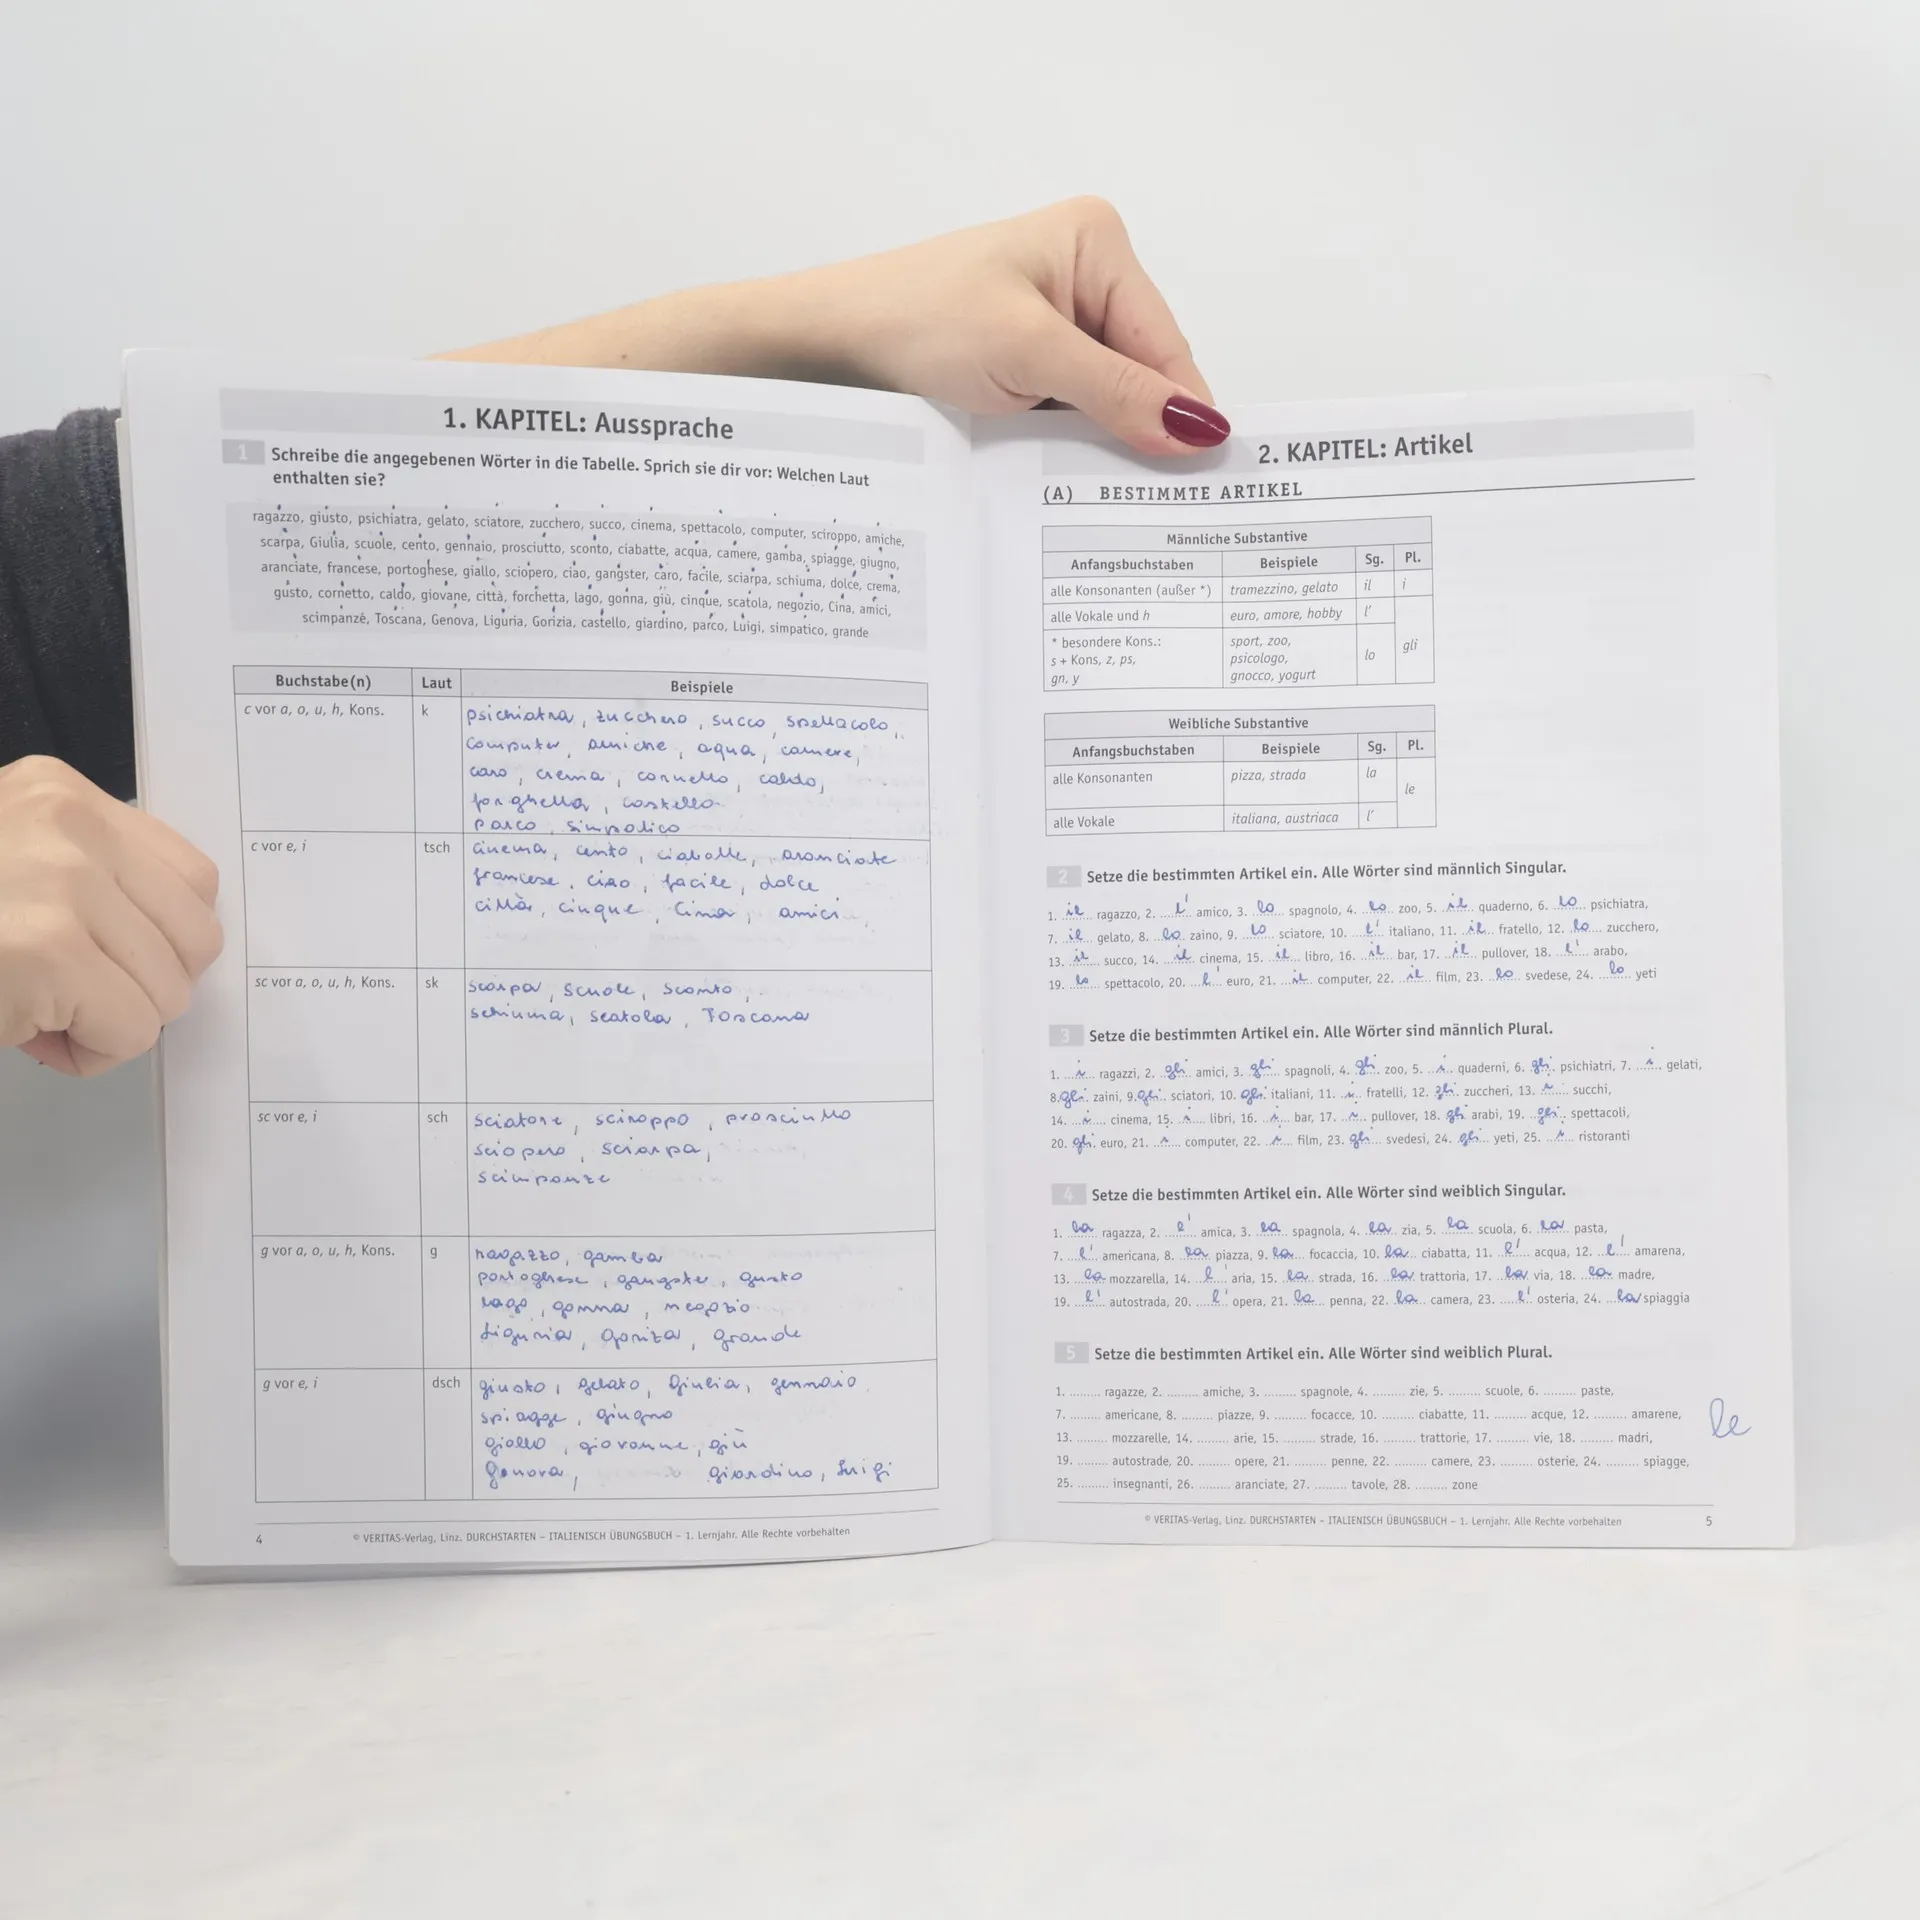 1. KAPITEL: Aussprache
1 Schreibe die angegebenen Wörter in die Tabelle. Sprich sie dir vor: Welchen Laut
enthalten sie?
ragazzo, giusto, psichiatra, gelato, sciatore, zucchero, succo, cinema, spettacolo, computer, sciroppo, amiche,
scarpa, Giulia, scuole, cento, gennaio, prosciutto, sconto, ciabatte, acqua, camere, gamba, spiagge, giugno,
aranciate, francese, portoghese, giallo, sciopero, ciao, gangster, caro, facile, sciarpa, schiuma, dolce, crema,
gusto, cornetto, caldo, giovane, città, forchetta, lago, gonna, giù, cinque, scatola, negozio, Cina, amici,
scimpanzé, Toscana, Genova, Liguria, Gorizia, castello, giardino, parco, Luigi, simpatico, grande
Buchstabe(n) Laut Beispiele
c vor a, o, u, h, Kons. k psichiatra, zucchero, succo, spettacolo,
computer, amiche, aqua, camere,
caro, crema, cornetto, caldo,
forghetta, castello
parco, simpatico
c vor e, i tsch cinema, cento, ciabatte, aranciate
francese, ciao, facile, dolce
città, cinque, Cina, amici
sc vor a, o, u, h, Kons. sk scarpa, scuole, sconto,
schiuma, scatola, Toscana
sc vor e, i sch sciatore, sciroppo, prosciutto
sciopero, sciarpa,
scimpanze
g vor a, o, u, h, Kons. g ragazzo, gamba
portoghese, gangster, gusto
lago, gonna, negozio
Liguria, Goriza, grande
g vor e, i dsch giusto, gelato, Giulia, gennaio
spiagge, giugno
giallo, giovanne, giù
Genova, giardino, Luigi
4 © VERITAS-Verlag, Linz. DURCHSTARTEN – ITALIENISCH ÜBUNGSBUCH – 1. Lernjahr. Alle Rechte vorbehalten
2. KAPITEL: Artikel
(A) BESTIMMTE ARTIKEL
Männliche Substantive
Anfangsbuchstaben Beispiele Sg. Pl.
alle Konsonanten (außer *) tramezzino, gelato il i
alle Vokale und h euro, amore, hobby l'
* besondere Kons.: sport, zoo,
s + Kons, z, ps, psicologo, lo gli
gn, y gnocco, yogurt
Weibliche Substantive
Anfangsbuchstaben Beispiele Sg. Pl.
alle Konsonanten pizza, strada la le
alle Vokale italiana, austriaca l'
2 Setze die bestimmten Artikel ein. Alle Wörter sind männlich Singular.
1. il ragazzo, 2. l' amico, 3. lo spagnolo, 4. lo zoo, 5. il quaderno, 6. lo psichiatra,
7. il gelato, 8. lo zaino, 9. lo sciatore, 10. l' italiano, 11. il fratello, 12. lo zucchero,
13. il succo, 14. il cinema, 15. il libro, 16. il bar, 17. il pullover, 18. l' arabo,
19. lo spettacolo, 20. l' euro, 21. il computer, 22. il film, 23. lo svedese, 24. lo yeti
3 Setze die bestimmten Artikel ein. Alle Wörter sind männlich Plural.
1. i ragazzi, 2. gli amici, 3. gli spagnoli, 4. gli zoo, 5. i quaderni, 6. gli psichiatri, 7. i gelati,
8. gli zaini, 9. gli sciatori, 10. gli italiani, 11. i fratelli, 12. gli zuccheri, 13. i succhi,
14. i cinema, 15. i libri, 16. i bar, 17. i pullover, 18. gli arabi, 19. gli spettacoli,
20. gli euro, 21. i computer, 22. i film, 23. gli svedesi, 24. gli yeti, 25. i ristoranti
4 Setze die bestimmten Artikel ein. Alle Wörter sind weiblich Singular.
1. la ragazza, 2. l' amica, 3. la spagnola, 4. la zia, 5. la scuola, 6. la pasta,
7. l' americana, 8. la piazza, 9. la focaccia, 10. la ciabatta, 11. l' acqua, 12. l' amarena,
13. la mozzarella, 14. l' aria, 15. la strada, 16. la trattoria, 17. la via, 18. la madre,
19. l' autostrada, 20. l' opera, 21. la penna, 22. la camera, 23. l' osteria, 24. la spiaggia
5 Setze die bestimmten Artikel ein. Alle Wörter sind weiblich Plural.
1. ......... ragazze, 2. ......... amiche, 3. ......... spagnole, 4. ......... zie, 5. ......... scuole, 6. ......... paste,
7. ......... americane, 8. ......... piazze, 9. ......... focacce, 10. ......... ciabatte, 11. ......... acque, 12. ......... amarene,
le
13. ......... mozzarelle, 14. ......... arie, 15. ......... strade, 16. ......... trattorie, 17. ......... vie, 18. ......... madri,
19. ......... autostrade, 20. ......... opere, 21. ......... penne, 22. ......... camere, 23. ......... osterie, 24. ......... spiagge,
25. ......... insegnanti, 26. ......... aranciate, 27. ......... tavole, 28. ......... zone
© VERITAS-Verlag, Linz. DURCHSTARTEN – ITALIENISCH ÜBUNGSBUCH – 1. Lernjahr. Alle Rechte vorbehalten 5